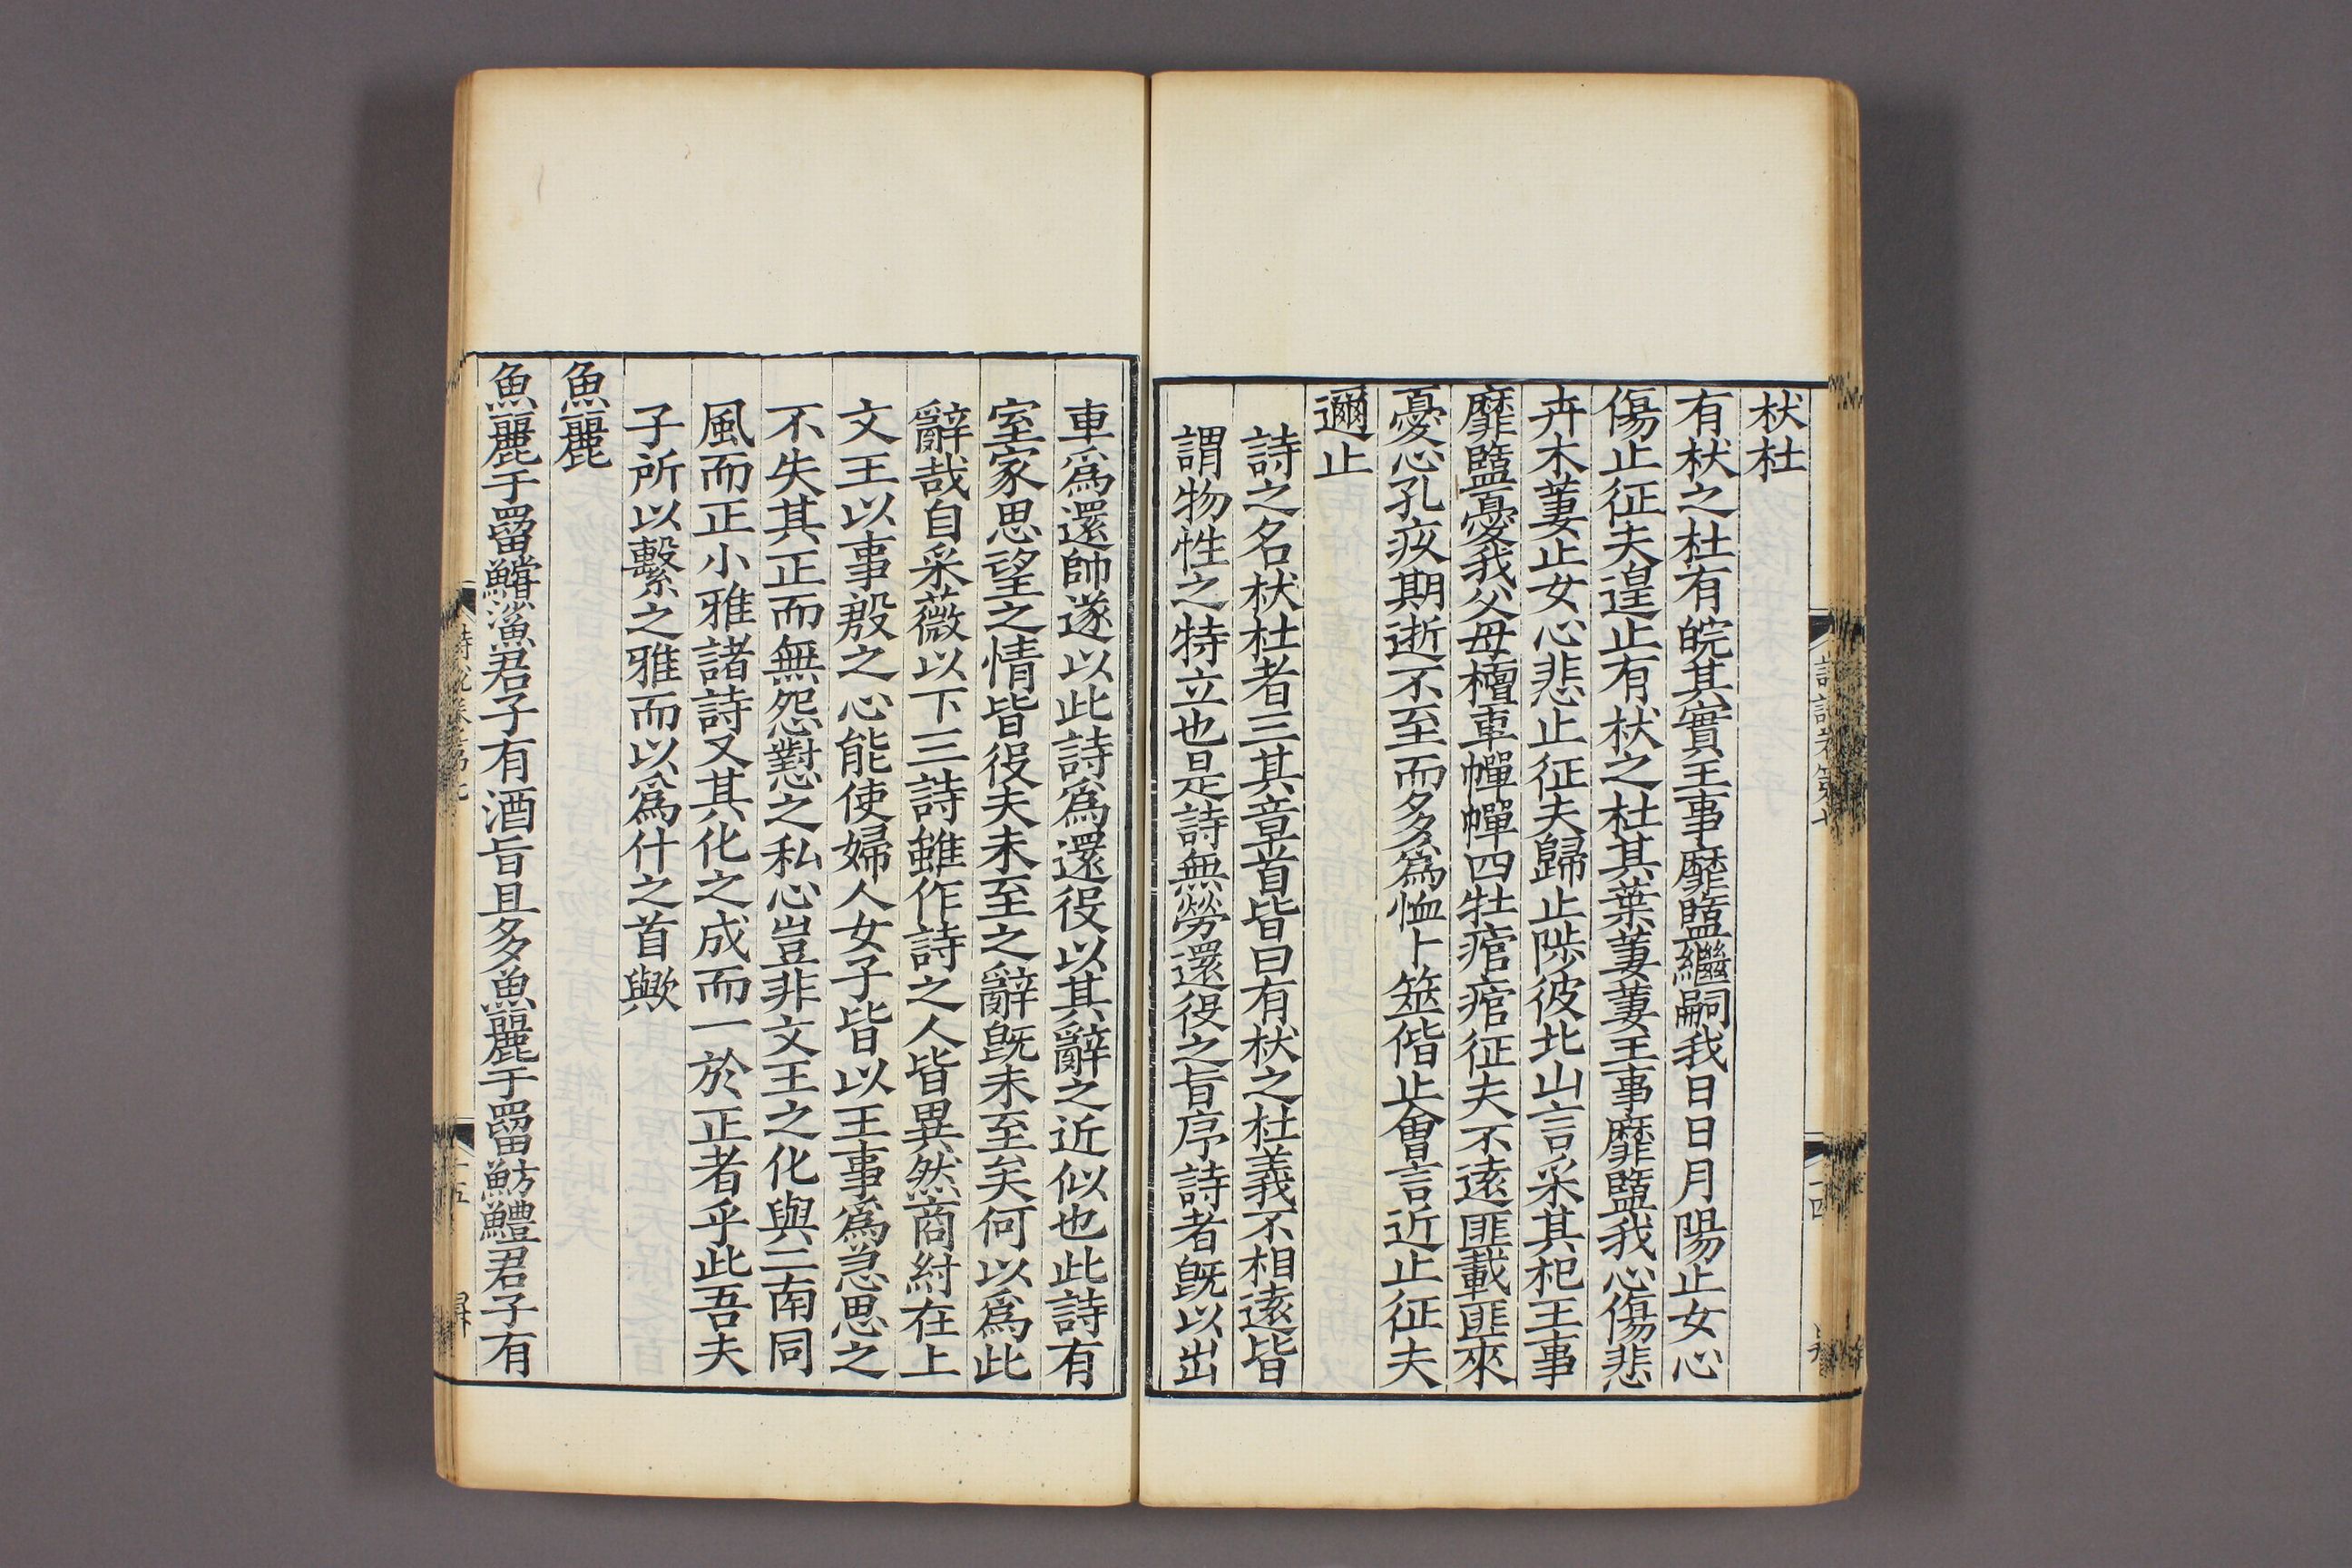 杕杜
有杕之杜有皖其實王事靡盬繼嗣我日日月陽止女心
傷止征夫遑止有杕之杜其葉萋萋王事靡盬我心傷悲
卉木萋止女心悲止征夫歸止陟彼北山言采其杞王事
靡盬憂我父母檀車幝幝四牡痯痯征夫不遠匪載匪來
憂心孔疚期逝不至而多爲恤卜筮偕止會言近止征夫
邇止
詩之名杕杜者三其章首皆曰有杕之杜義不相遠皆
謂物性之特立也是詩無勞還役之旨序詩者旣以出
車爲還帥遂以此詩爲還役以其辭之近似也此詩有
室家思望之情皆役夫未至之辭旣未至矣何以爲此
辭哉自采薇以下三詩雖作詩之人皆異然商紂在上
文王以事殷之心能使婦人女子皆以王事爲急思之
不失其正而無怨懟之私心豈非文王之化與二南同
風而正小雅諸詩又其化之成而一於正者乎此吾夫
子所以繫之雅而以爲什之首歟
魚麗
魚麗于罶鱨鯊君子有酒旨且多魚麗于罶魴鱧君子有